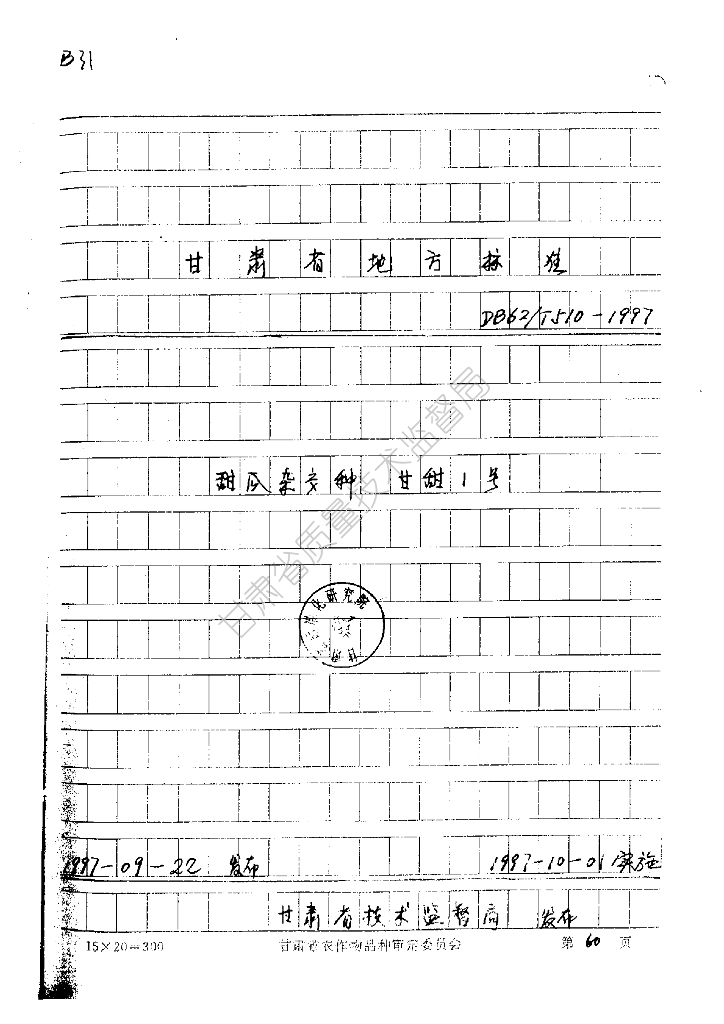 B31
甘肃省地方标准
DB62/T510-1997
甜瓜杂交种 甘甜1号
甘肃省质量技术监督局
化研究院
1997-09-22 发布 1997-10-01 实施
甘肃省技术监督局 发布
15×20=300 甘肃省农作物品种审定委员会 第 60 页